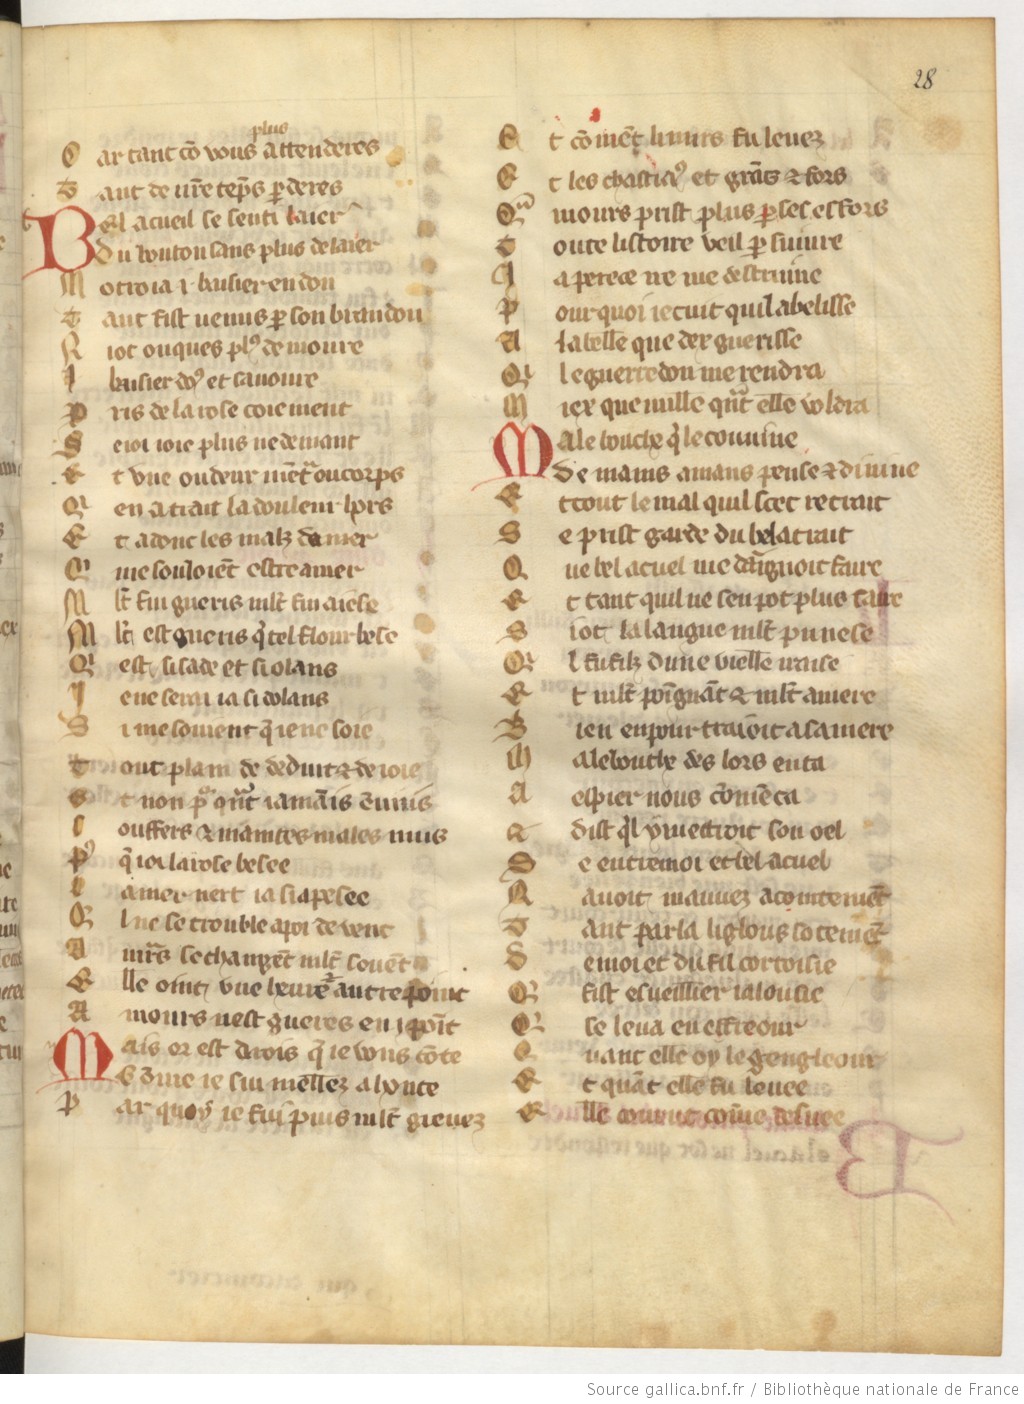 28
plus
C ar tant cō vous attenderes
T ant de vr̄e tēps ꝑderes
B el acueil se senti laier
D u bouton sans plus delaier
M otroia .i. baisier en don
T ant fist venus ꝑ son brandon
N iot onques plꝰ demoure
I baisier dous et savoure
P ris de la rose coiement
S eioi ioie plus ne demant
E t une oudeur mēt ou corps
Q en atrait la douleur hors
E t adouc les malz damer
Q me souloiēt estre amer
M lt̄ fui gueris mlt̄ fui aiese
M lt̄ est gueris q̄ tel flour bese
Q est si sade et si olans
I e ne serai ia si dolans
S i me sovient q̄ ie ne soie
T out plain de deduit & de ioie
E t non pͦ qͣnt iamais ēnuis
I ouffers & maintes males nuis
P q̄ ioi la rose besee
L a mer nert ia si apesee
Q l ne se trouble a poi de vent
A mrs se changēt mlt̄ souēt
E lle oint une heure autre point
A mours nest gueres en .i. point
M ais or est drois q̄ ie vous cōte
C ōme ie sui mellez a honte
P ar quoy ie fui puis mlt̄ grevez
E t cōment li murs fu levez
E t les chastiaꝰ et grans & fors
Q mours prist plus ꝑ ses effors
T oute listoire veil ꝑsuivre
I a perece ne me destruive
P our quoi ie cuit quil abelisse
A la belle que dex guerisse
Q le guerredon me rendra
M iex que nulle qͣnt elle voldra
M ale bouche q̄ le couvine
D e mains amans pense & divine
E t tout le mal quil scet retrait
S e prist garde du bel atrait
Q ue bel acuel me daignoit faire
E t tant quil ne sen pot plus taire
S iot la langue mlt̄ punese
Q l fu filz dune vielle iraise
E t mlt̄ poignāt & mlt̄ amere
B ien en pourtraioit a sa mere
M alebouche des lors en ca
A espier nous cōmēca
& dist ql̄ metroit son oel
D e entre moi et bel acuel
A avoit mauvez acointemēt
T ant parla li glous sotemēt
D e moi et du fil cortoisie
Q fist esveillier ialousie
Q se leva en effreour
Q uant elle oy le gengleour
E t quāt elle fu levee
E lle courut cōme desvee
Source gallica.bnf.fr / Bibliothèque nationale de France